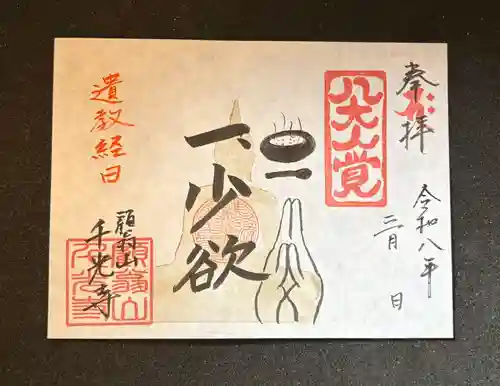 奉拝
令和八年
二月 日
八大人覚
一、少欲
遺教経日
頭翁山
千光寺